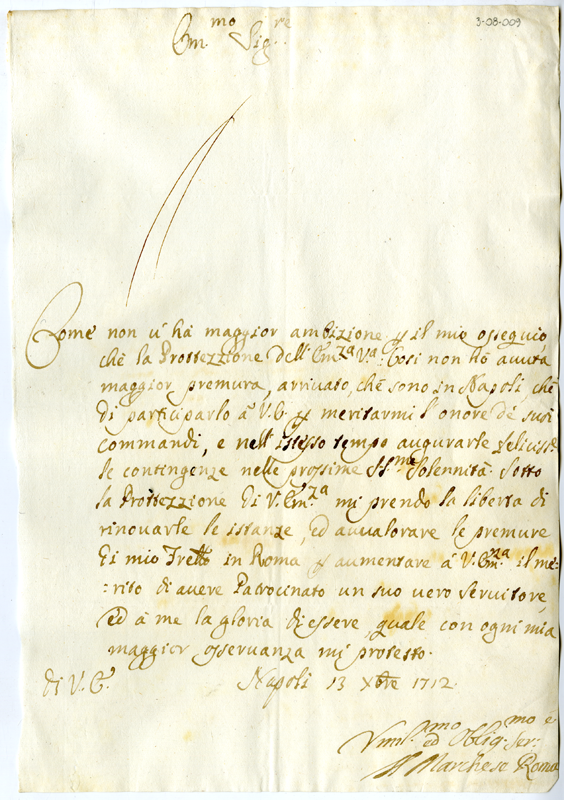 3-08-009
Em.mo Sig.re
Come non u' há maggior ambizione p il mio ossequio
chè la Protezzione dell'Em.za V.a Cosi non hó auuta
maggior premura, arriuato, chè sono in Napoli, chè
di participarlo à V.E. p meritarmi l'onore dè suoi
commandi, e nell'istesso tempo augurarle feliciss.
le contingenze nelle prossime SS.me Solennità. Sotto
la Protezzione di V. Em.za mi prendo la libertà di
rinouarle le istanze, ed auualorare le premure
di mio Fretto in Roma p aumentare á V. Em.za il me-
:rito di auere Patrocinato un suo uero seruitore,
ed à me la gloria di essere, quale con ogni mia
maggior osseruanza mi protesto.
di V.E. Napoli 13 Xbre 1712.
Vmil.mo ed Oblig.mo ser.e
Il Marchese Roma